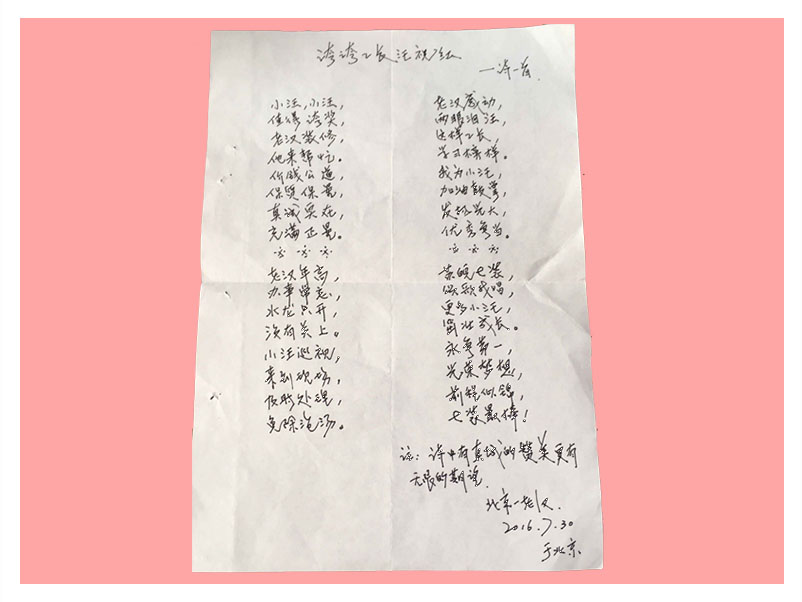 夸夸工长汪祝红
一诗一首.
小汪,小汪,
值得夸奖,
老汉装修,
他来帮忙。
价钱公道,
保质保量,
真诚实在,
充满正量。
老汉年高,
办事常忘,
水龙头开,
没有关上。
小汪巡视,
来到现场,
及时处理,
免除淹汤。
老汉感动,
两眼泪汪,
这样工长,
学习榜样。
我为小汪,
加油鼓掌,
发扬光大,
优秀争当。
业皖七装,
颂歌我唱,
更多小汪,
茁壮成长。
永争第一,
光荣梦想,
前程似锦,
七装最棒!
注:诗中有真诚的赞美更有
无限的期望.
北京一老汉
2016.7.30
于北京